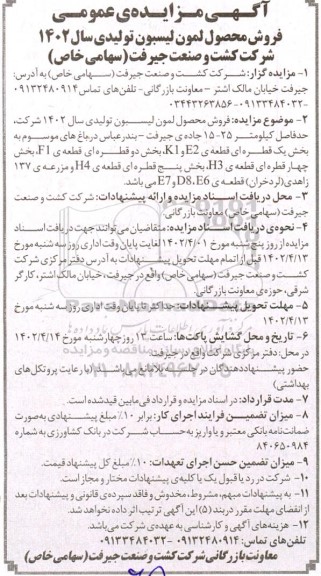 آگهی مزایده‌ی عمومی
فروش محصول لمون لیسبون تولیدی سال ۱۴۰۲
شرکت کشت و صنعت جیرفت (سهامی خاص)
۱- مزایده گزار: شرکت کشت و صنعت جیرفت (سهامی خاص) به آدرس:
جیرفت خیابان مالک اشتر - معاونت بازرگانی- تلفن‌های تماس ۰۹۱۳۲۴۸۰۹۱۴
-۰۹۱۳۳۴۸۴۰۳۲ -۰۳۴۴۳۲۶۳۸۵۶
۲- موضوع مزایده: فروش محصول لمون لیسبون تولیدی سال ۱۴۰۲ شرکت،
حدفاصل کیلومتر ۲۵-۱۵ جاده‌ی جیرفت - بندرعباس در باغ های موسوم به
بخش یک قطره ای قطعه ی E2 و K1، بخش دو قطره ای قطعه ی F1، بخش
چهار قطره ای قطعه ی H3، بخش پنج قطره ای قطعه ی H4 و مزرعه ی ۱۳۷
زاهدی (لردخران) قطعه ی D8، E6 و E7 می باشد.
۳- محل دریافت اسناد مزایده و ارائه پیشنهادات: شرکت کشت و صنعت
جیرفت (سهامی خاص) معاونت بازرگانی
۴- نحوه‌ی دریافت اسناد مزایده: متقاضیان می‌توانند جهت دریافت اسناد
مزایده از روز پنج شنبه مورخ ۱۴۰۲/۴/۰۱ لغایت پایان وقت اداری روز سه شنبه مورخ
۱۴۰۲/۴/۱۳ قبل از اتمام مهلت تحویل پیشنهادات به آدرس دفتر مرکزی شرکت
کشت و صنعت جیرفت (سهامی خاص) واقع در جیرفت، خیابان مالک اشتر، کارگر
شرقی، حوزه‌ی معاونت بازرگانی.
۵- مهلت تحویل پیشنهادات: حداکثر تا پایان وقت اداری روز سه شنبه مورخ
۱۴۰۲/۴/۱۳
۶- تاریخ و محل گشایش پاکت‌ها: ساعت ۱۲ روز چهارشنبه مورخ ۱۴۰۲/۴/۱۴
در محل: دفتر مرکزی شرکت واقع در جیرفت
حضور پیشنهاددهندگان در جلسه بلامانع می باشد. (با رعایت پروتکل های
بهداشتی)
۷- مدت قرارداد: در اسناد مزایده و قرارداد فی مابین قید شده است.
۸- میزان تضمین فرایند اجرای کار: برابر ۱۰٪ مبلغ پیشنهادی به صورت
ضمانت‌نامه بانکی معتبر و یا واریز به حساب شرکت در بانک کشاورزی به شماره
۸۴۰۶۵۰۹۸۴
۹- میزان تضمین حسن اجرای تعهدات: ۱۰٪ مبلغ کل پیشنهاد قیمت.
۱۰- شرکت در رد یا قبول یک یا کلیه‌ی پیشنهادات مختار و مجاز است.
۱۱- به پیشنهادات مبهم، مشروط، مخدوش و فاقد سپرده‌ی قانونی و پیشنهادات بعد
از انقضای مهلت مقرر در بند (۵) این آگهی ترتیب اثر داده نخواهد شد.
۱۲- هزینه‌های آگهی و کارشناسی به عهده‌ی شرکت می‌باشد.
تلفن‌های تماس: ۰۹۱۳۲۴۸۰۹۱۴ -۰۹۱۳۳۴۸۴۰۳۲
معاونت بازرگانی شرکت کشت و صنعت جیرفت (سهامی خاص)